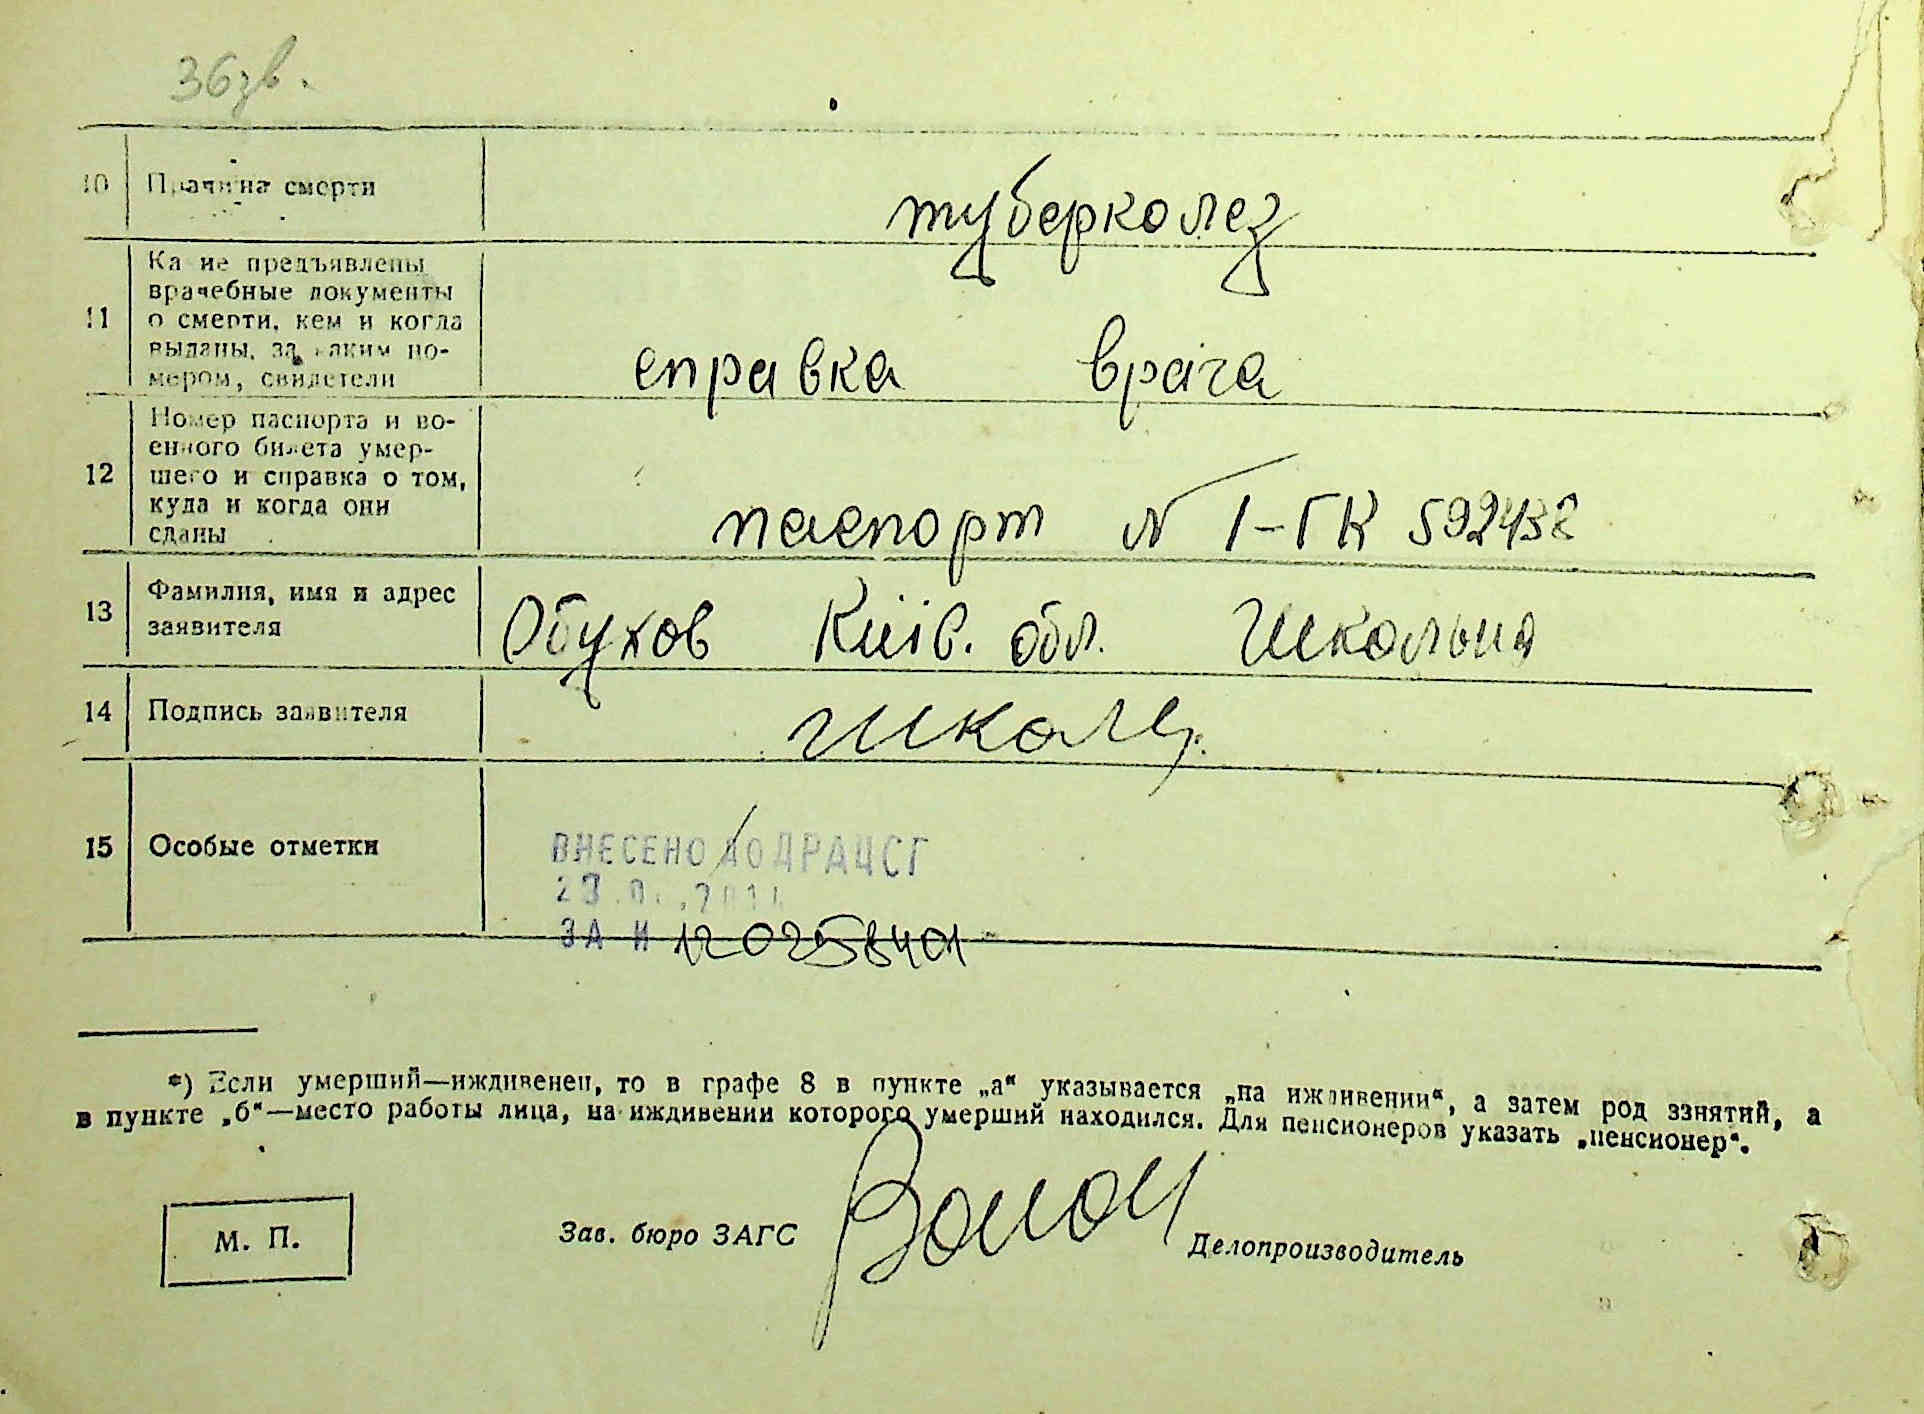 36зв.
10 Причина смерти
туберколез
Какие предъявлены
врачебные документы
11 о смерти, кем и когда
выданы, за каким но-
мером, свидетели
справка врача
Номер паспорта и во-
енного билета умер-
12 шего и справка о том,
куда и когда они
сданы
паспорт № I-ГК 592438
13 Фамилия, имя и адрес
заявителя
Обухов Київ. обл. Школьна
14 Подпись заявителя
15 Особые отметки
ВНЕСЕНО ДО ДРАЦСГ
ЗА И 120258401
*) Если умерший—иждивенец, то в графе 8 в пункте „а“ указывается „на иждивении“, а затем род ззнятий, а
в пункте „б“—место работы лица, на иждивении которого умерший находился. Для пенсионеров указать „пенсионер“.
М. П.
Зав. бюро ЗАГС
Делопроизводитель